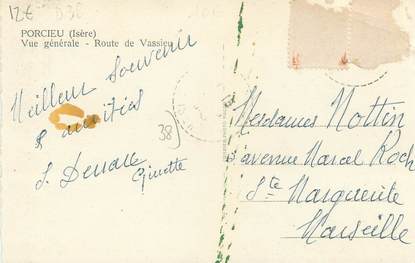 12€ D38
PORCIEU (Isère)
Vue générale - Route de Vassieu
Meilleur Souvenir
& amitiés
Ginette
38)
Mesdames Nottin
avenue Marcel Roch
Ste Marguerite
Marseille